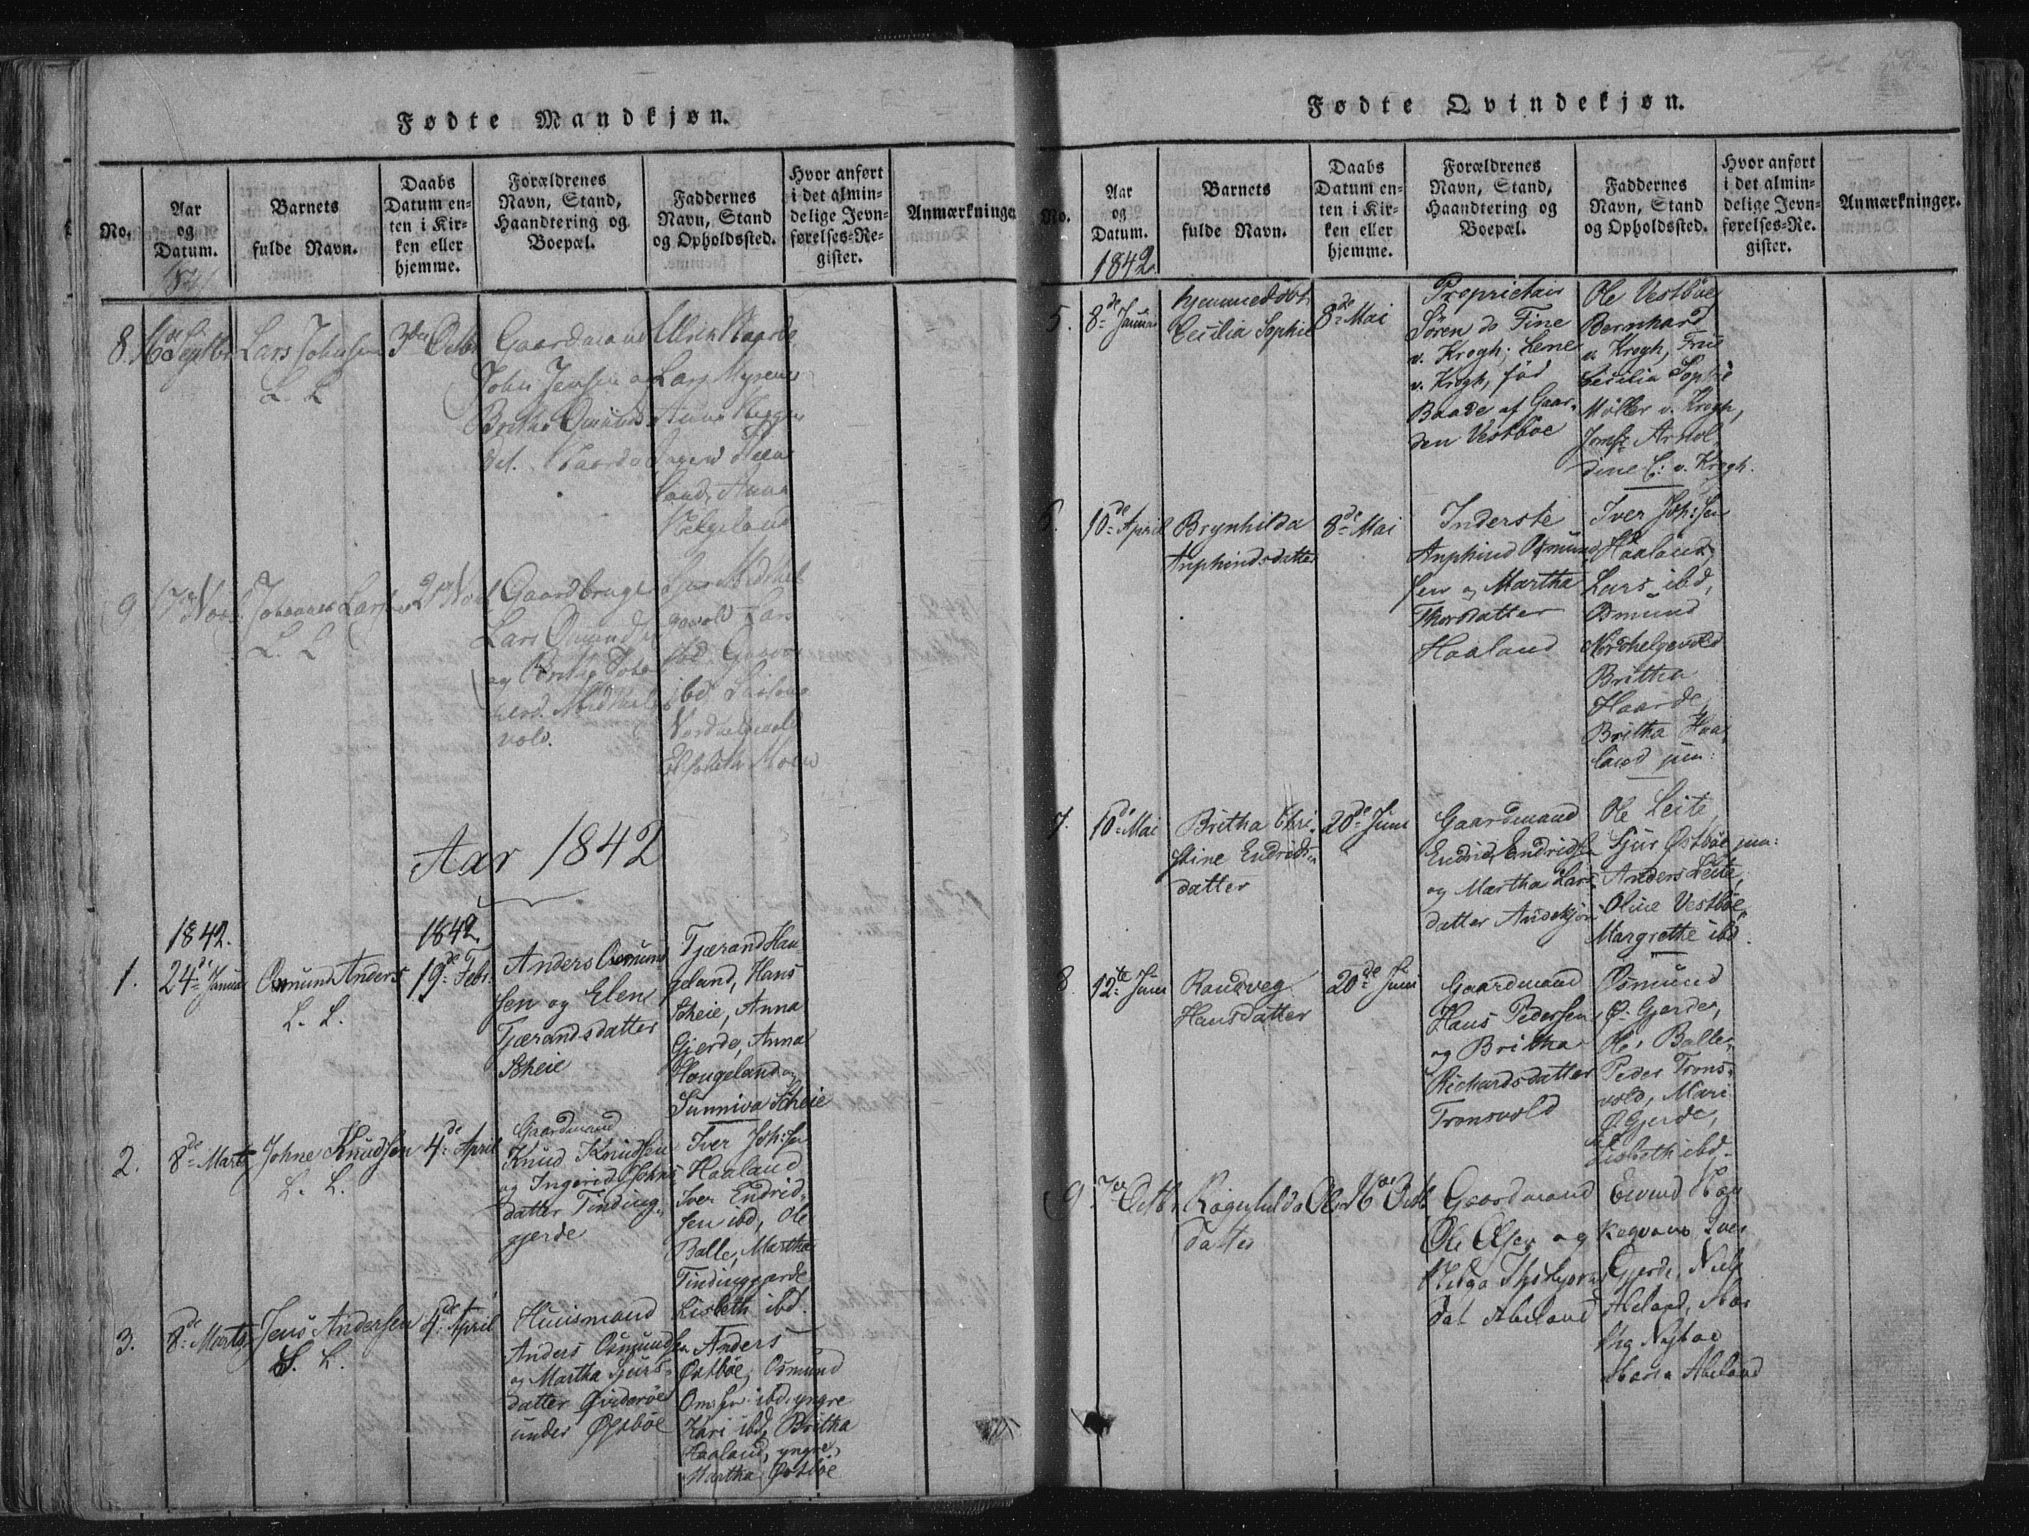 Fødte Mandkjøn.
No.
Aar og Datum.
Barnets fulde Navn.
Daabs Datum enten i Kirken eller hjemme.
Forældrenes Navn, Stand, Haandtering og Boepæl.
Faddernes Navn, Stand og Opholdssted.
Hvor anført i det almindelige Jevnførelses-Register.
Anmærkninge
1841
8.
16de Septbr
Lars Johnsen
L. L.
3die Octbr
Gaardmand
John Jensen og
Britha Osmunds
dat.
Lars Myrene
Anna
Anna
Helgeland
9
17 Nov
Johannes Larsen
L. L
21 Nov
Gaardbruger
Lars Osmundse
og Brita Joha
Midthelg
vold.
Midthel
gevold Lars
ibd
Nordhelgevold
Elsebeth Moen
Aar 1842
1842.
1842
1.
24de Januar
Osmund Anders
L. L.
19de Febr.
Anders Osmund
sen og Elene
Tjærandsdatter
Scheie
Tjærand Hau
geland, Hans
Scheie, Anna
Gjerde, Anna
Hougeland og
Sunniva Scheie
2.
8de Marts
Johne Knudsen
L. L.
4de April
Gaardmand
Knud Knudsen
og Ingerid Johns
datter Tinding-
gjerde
Iver Joh:sen
Haaland
Iver Endrid-
sen ibd, Ole
Balle, Martha
Tindinggjerde,
Lisbeth ibd.
3.
8de Marts
Jens Andersen
S. L.
4de April
Huusmand
Anders Osmundsen
og Martha Sjurs-
datter Qviderøe
under Østbøe
Anders
Østbøe, Osmund
Om:sen ibd. yngre
Kari ibd, Britha
Haaland, yngre,
Martha Østbøe
Fødte Qvindekjøn.
No.
Aar og Datum.
Barnets fulde Navn.
Daabs Datum enten i Kirken eller hjemme.
Forældrenes Navn, Stand, Haandtering og Boepæl.
Faddernes Navn, Stand og Opholdssted.
Hvor anført i det almindelige Jevnførelses-Re. gister.
Anmærkninger.
1842
5.
8de Januar
hjemmedøbt
Cecilia Sophie
8de Mai
Proprietair
Sören de Fine
v. Krogh; Lene
v. Krogh, fød
Baade af Gaar-
den Vestbøe
Ole Vestbøe
Bernhard
v. Krogh, Frue
Cecilia Sophie
Möller v. Krogh,
Jomf: Arnol
dine C: v. Krogh.
6.
10de April
Brynhilda
Anphindsdatter
8de Mai
Inderste
Anphind Osmund
sen og Martha
Thorsdatter
Haaland
Iver Joh:sen
Haaland,
Lars ibd,
Osmund
Nordhelgevold
Britha
Haarde,
Britha Haa
land jun:
7.
10de Mai
Britha Chri
stine Endrids-
datter
20de Juni
Gaardmand
Endrid Endridsen
og Martha Lars
datter Andskjön
Ole Leite,
Sjur Østbøe jun:
Anders Leite,
Oline Vestbøe,
Margrethe ibd.
8
12te Juni
Randveg
Hansdatter
20de Juni
Gaardmand
Hans Pedersen
og Britha
Richardsdatter
Tronsvold
Osmund
Ø. Gjerde,
Ole Balle,
Peder Trons-
vold, Mari
Ø Gjerde,
Lisbeth ibd-
9
7de Octbr
Ragnhilda Ols
datter
16de Octb
Gaardmand
Ole Olsen og
Helga Thorbjörns
dat Abeland
Eivind Høg
Iver
Gjerde, Niels
Abeland, Mar
Nesbøe
Maria Abeland